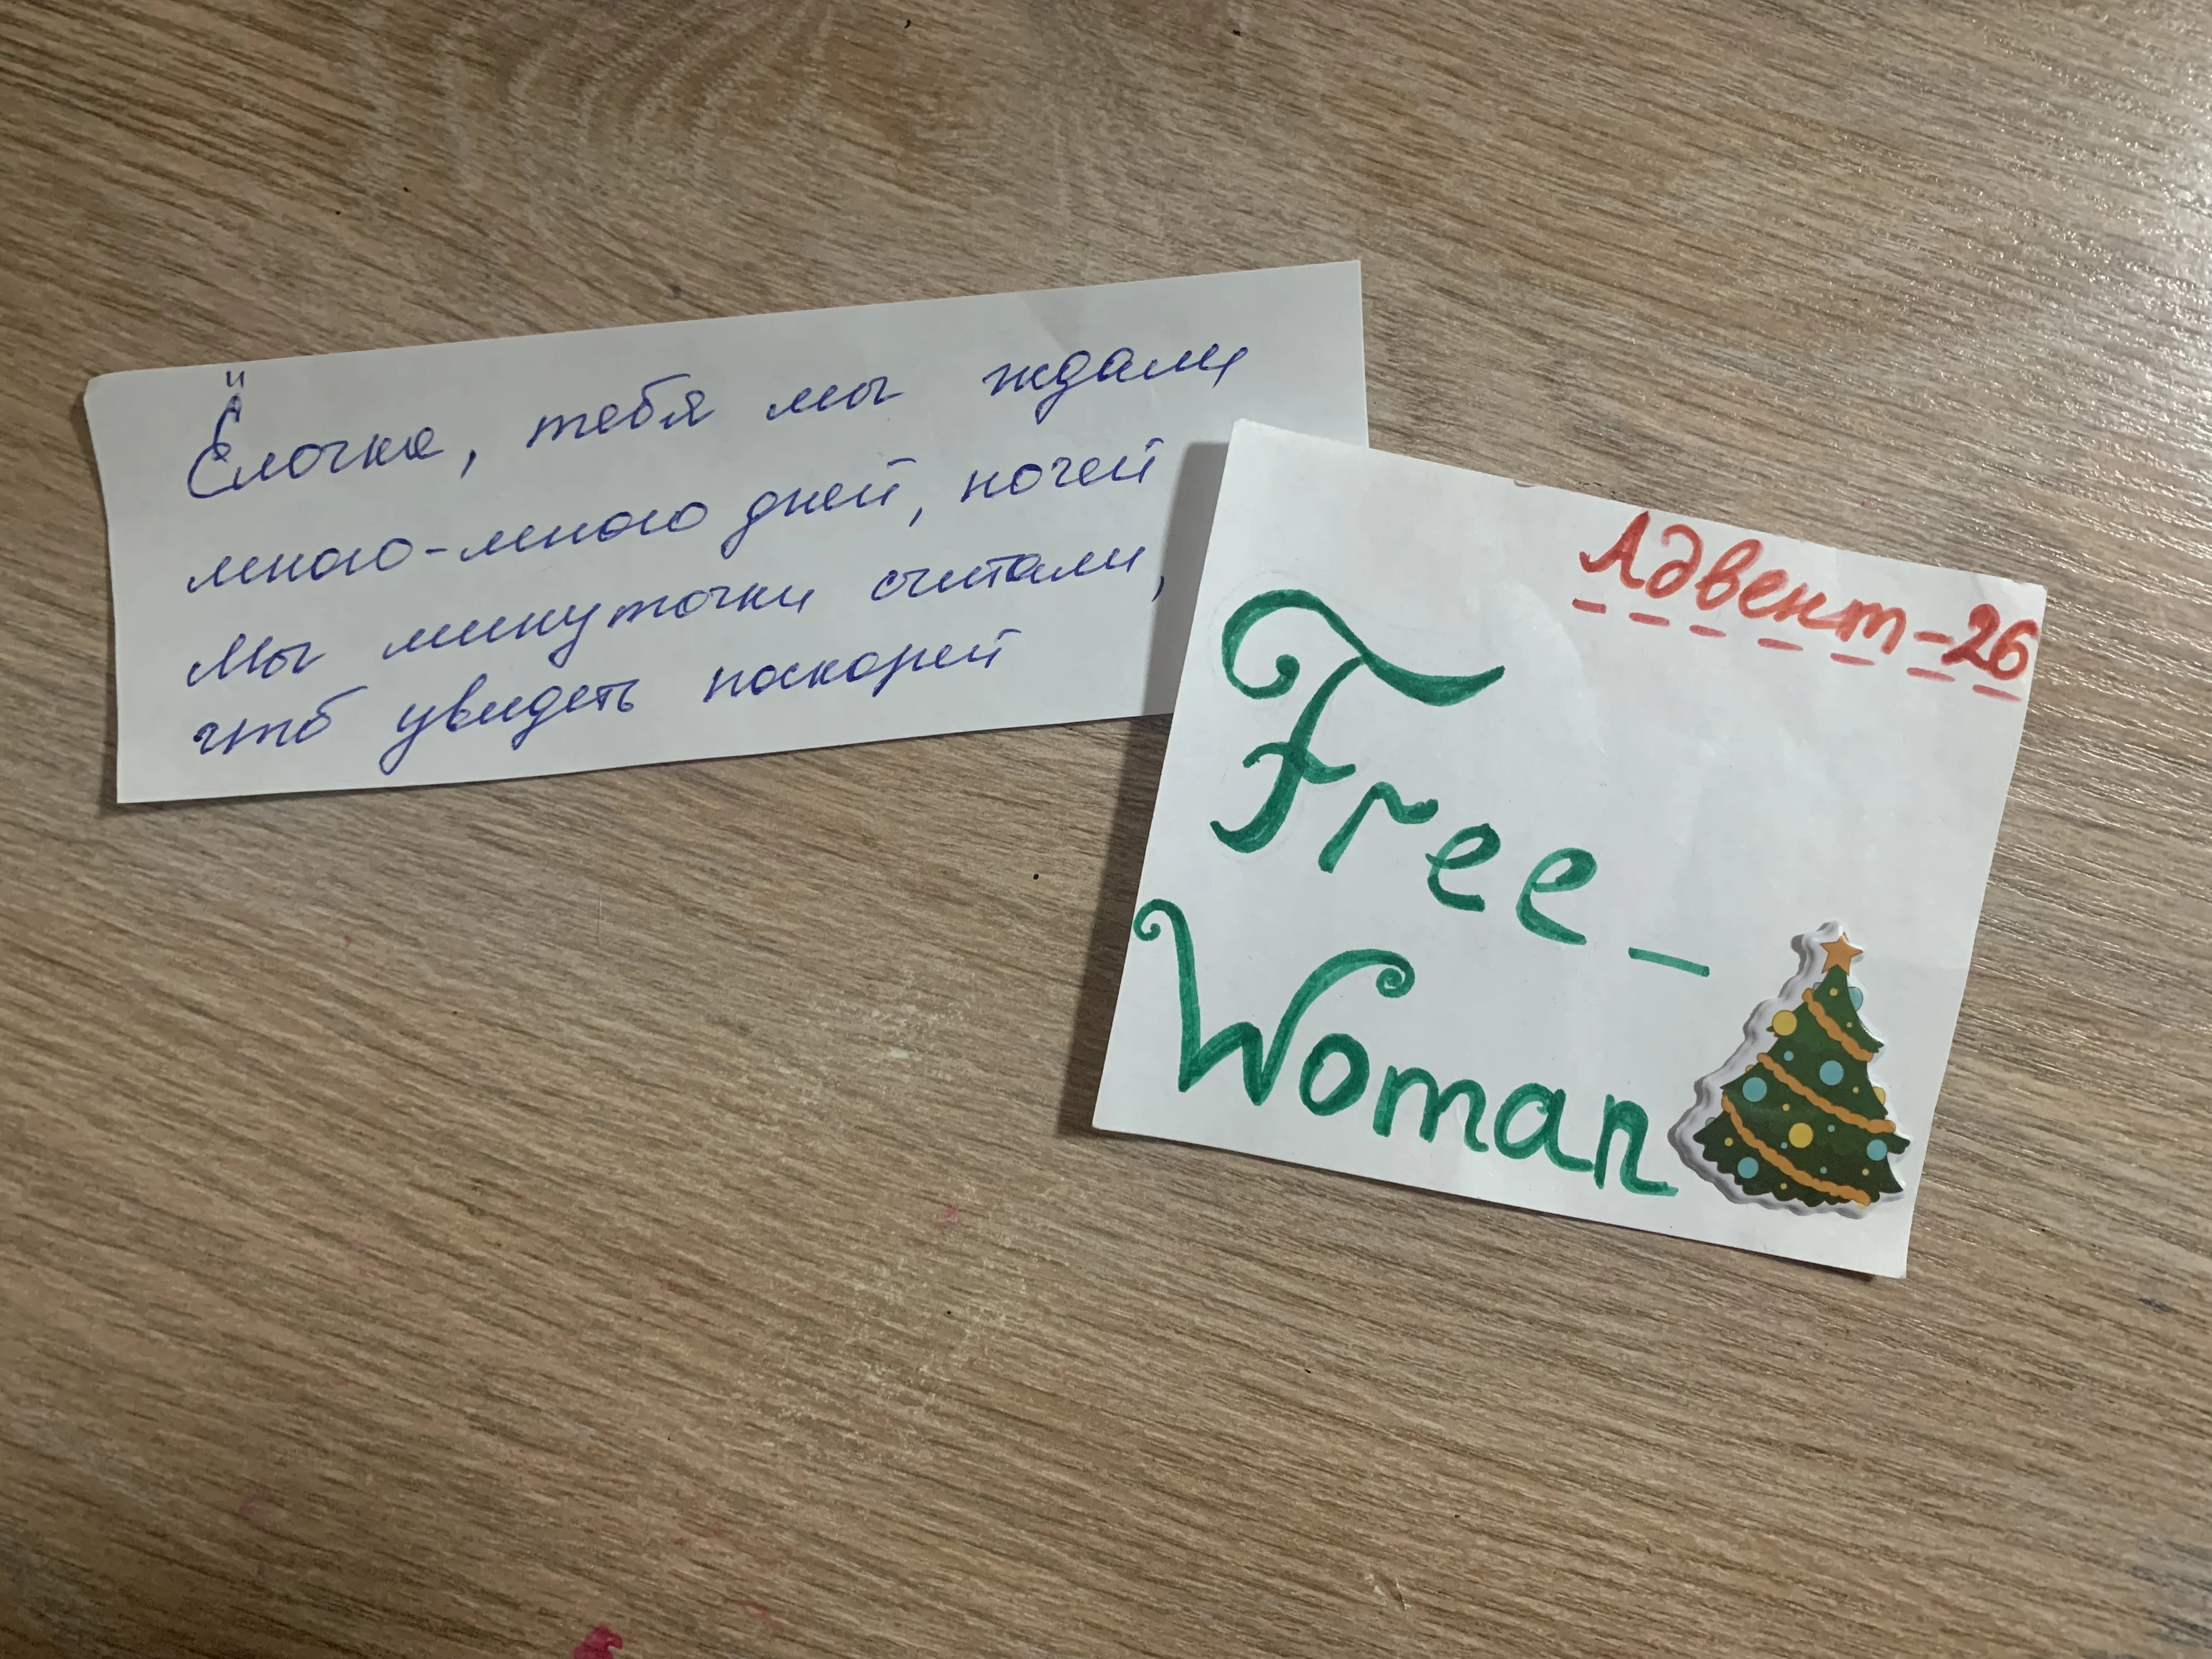 Ёлочка, тебя мы ждали
много-много дней, ночей
Мы минуточки считали,
чтб увидеть поскорей
Адвент-26
Free_
Woman